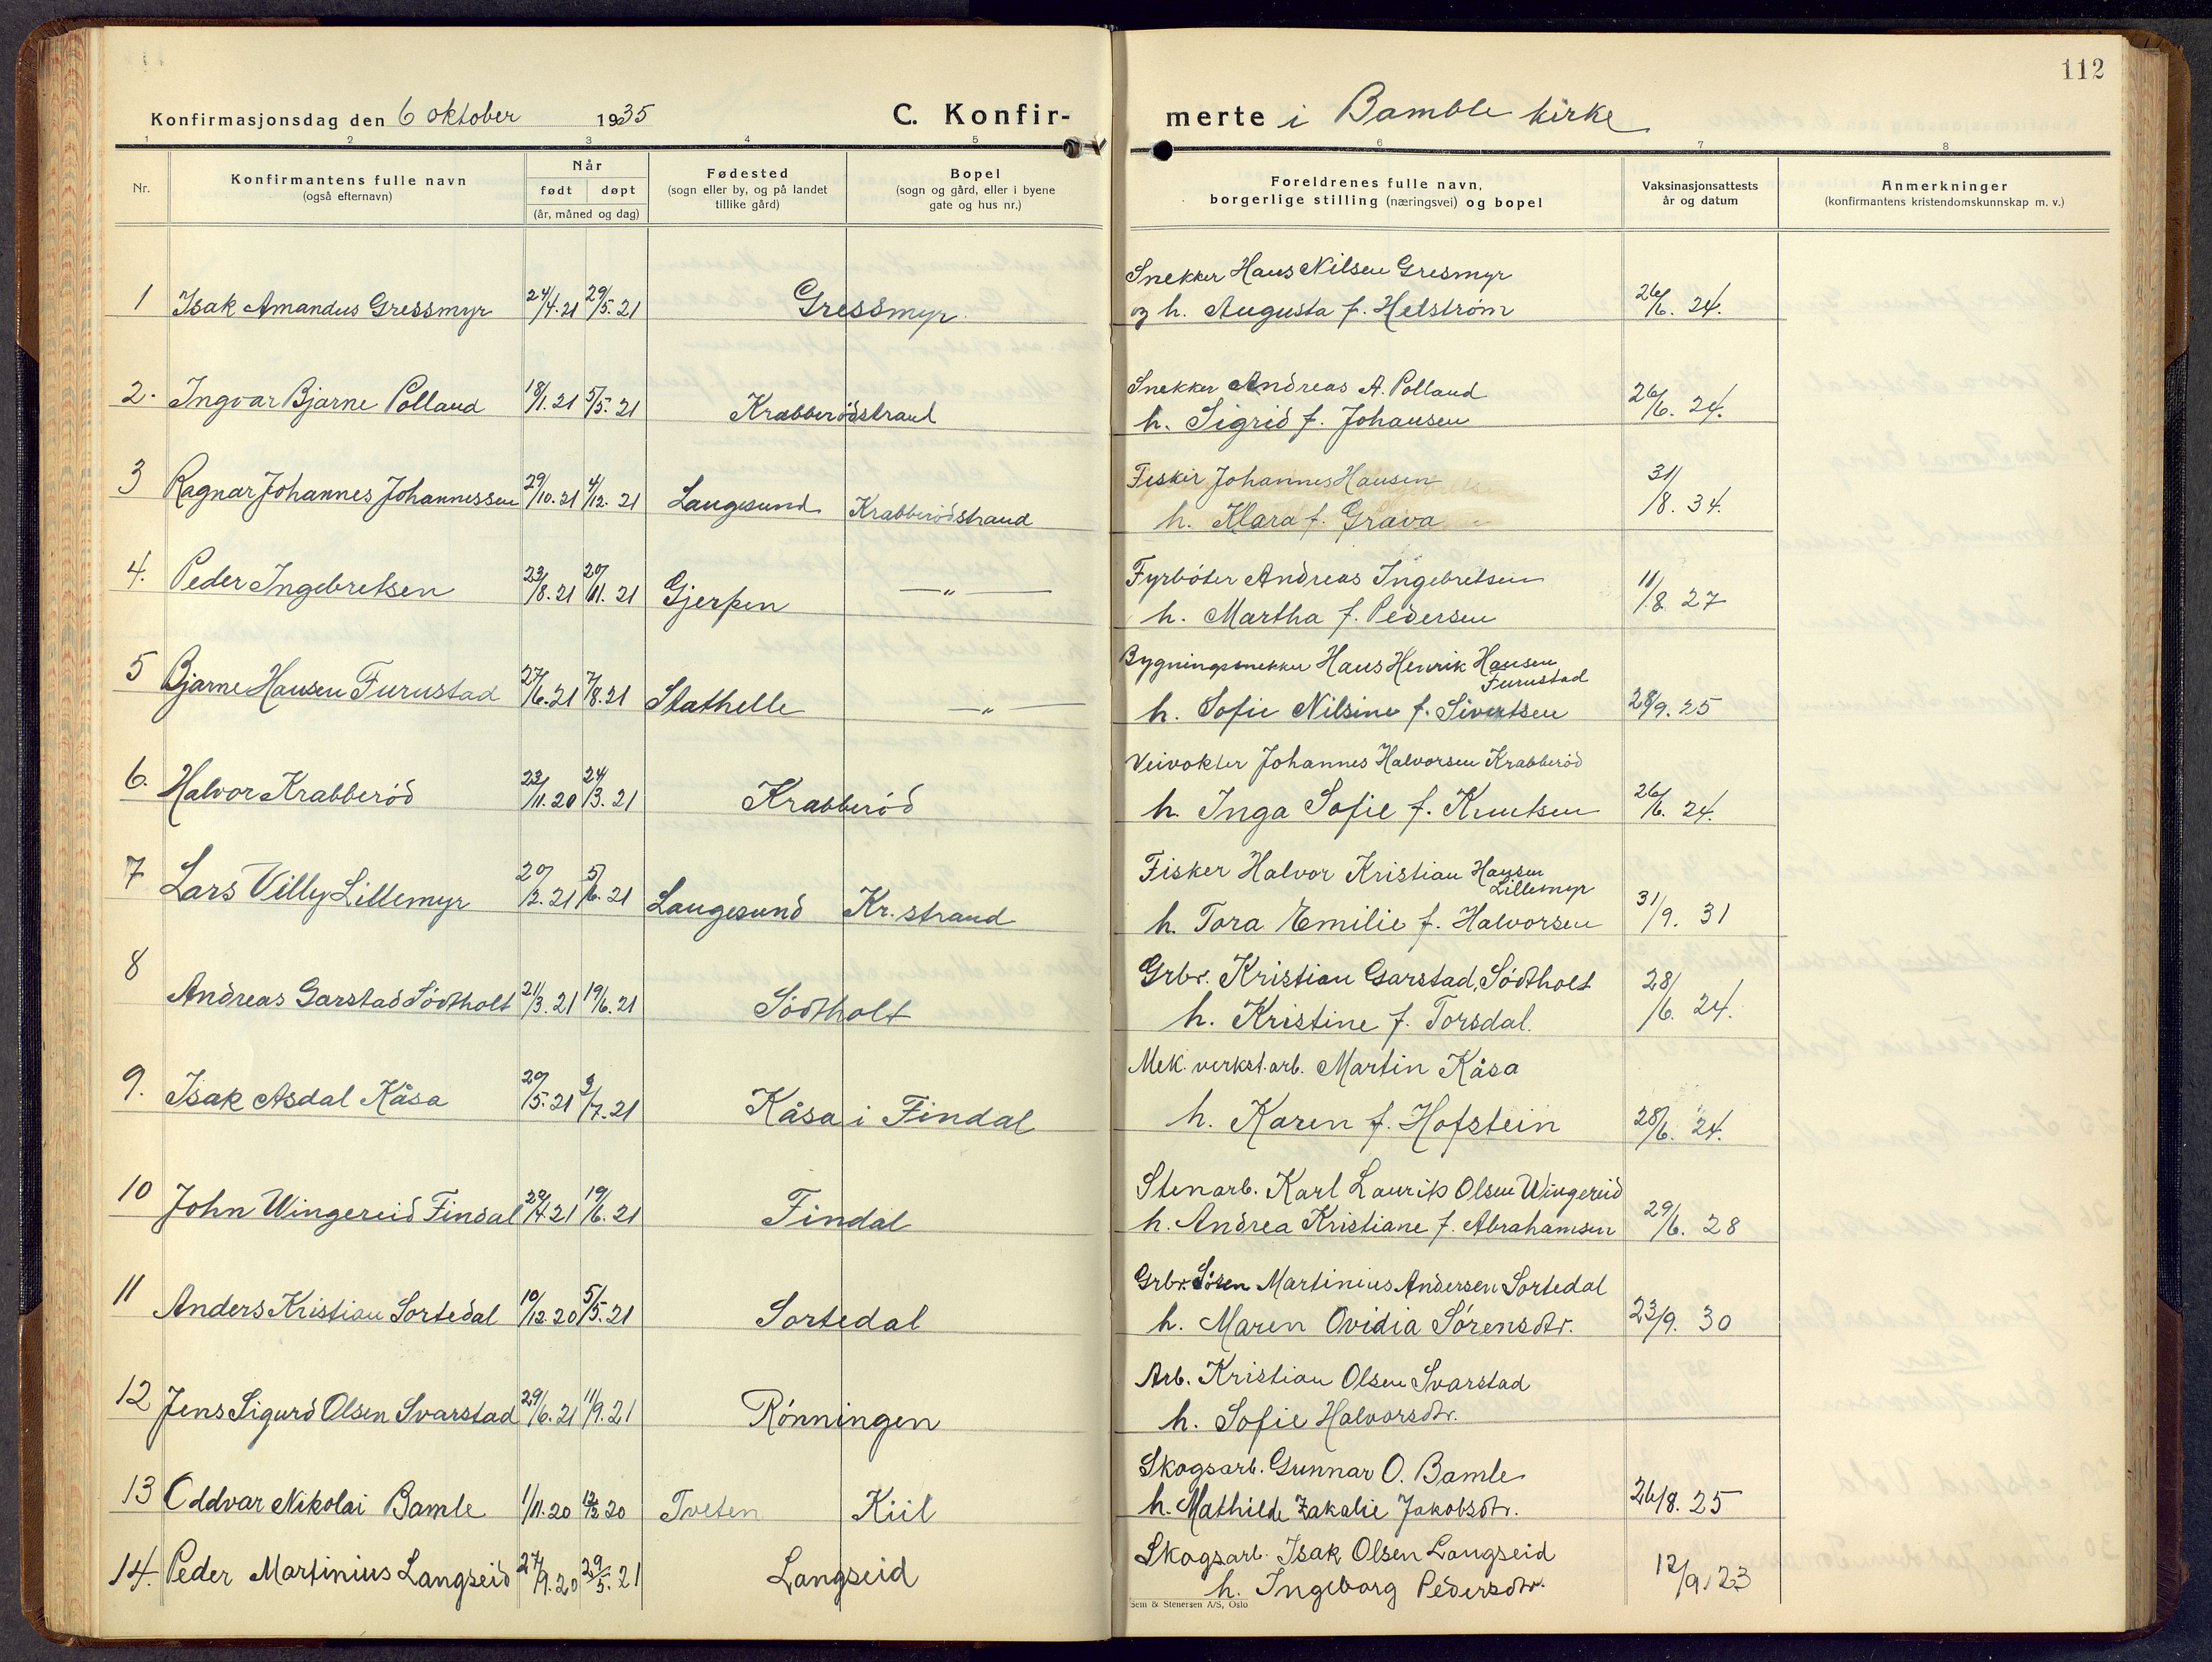 112
Konfirmasjonsdag den 6 oktober 1935 C. Konfir-
merte i Bamble kirke
1 2 3 4 5 6 7 8
Nr.
Konfirmantens fulle navn
(også efternavn)
Når
født døpt
(år, måned og dag)
Fødested
(sogn eller by, og på landet
tillike gård)
Bopel
(sogn og gård, eller i byene
gate og hus nr.)
Foreldrenes fulle navn,
borgerlige stilling (næringsvei) og bopel
Vaksinasjonsattests
år og datum
Anmerkninger
(konfirmantens kristendomskunnskap m. v.)
Snekker Hans Nilsen Gresmyr
1 Isak Amandus Gressmyr 24/4.21 29/5.21 Gressmyr og h. Augusta f. Helström 26/6. 24.
Snekker Andreas A. Polland
2. Ingvar Bjarne Polland 18/1.21 5/5.21 Krabberødstrand h. Sigrid f. Johansen 26/6. 24.
Fisker Johannes Hansen
3 Ragnar Johannes Johannessen 29/10.21 4/12.21 Langesund Krabberødstrand h. Klara f. Grava 31/8. 34.
Fyrbøter Andreas Ingebretsen
4. Peder Ingebretsen 23/8.21 20/11.21 Gjerpen —„— h. Martha f. Pedersen 11/8 27
Bygningssnekker Hans Henrik Hansen
Furustad
5 Bjarne Hansen Furustad 27/6.21 7/8.21 Stathelle —„— h. Sofie Nilsine f. Sivertsen 28/9. 25
Veivokter Johannes Halvorsen Krabberød
6. Halvor Krabberød 23/11.20 24/3.21 Krabberød h. Inga Sofie f. Knutsen 26/6. 24.
Fisker Halvor Kristian Hansen
Lillemyr
7 Lars Villy Lillemyr 20/2.21 5/6.21 Langesund Kr.strand h. Tora Emilie f. Halvorsen 31/9. 31
Grbr. Kristian Garstad, Södtholt
8 Andreas Garstad Södtholt 21/3.21 19/6.21 Södtholt h. Kristine f. Torsdal. 28/6. 24.
Mek. verkst.arb. Martin Kåsa
9. Isak Asdal Kåsa 20/5.21 3/7.21 Kåsa i Findal h. Karen f. Hofstein 28/6. 24.
Stenarb. Karl Laurits Olsen Wingereid
10 John Wingereid Findal 20/4 21 19/6.21 Findal h. Andrea Kristiane f. Abrahamsen 29/6. 28
Grbr. Sören Martinius Andersen Sortedal
11 Anders Kristian Sortedal 10/12.20 5/5.21 Sortedal h. Maren Ovidia Sørensdtr. 23/9. 30
Arb. Kristian Olsen Svarstad
12 Jens Sigurd Olsen Svarstad 29/6.21 11/9.21 Rønningen h. Sofie Halvorsdtr.
Skogsarb. Gunnar O. Bamle
13 Oddvar Nikolai Bamle 1/11.20 12/12 20 Tveten Kiil h. Mathilde Zakalie Jakobsdtr. 26/8. 25
Skogsarb. Isak Olsen Langseid
14. Peder Martinius Langseid 27/9.20 29/5.21 Langseid h. Ingeborg Pedersdtr. 12/9.23
Sem & Stenersen A/S, Oslo